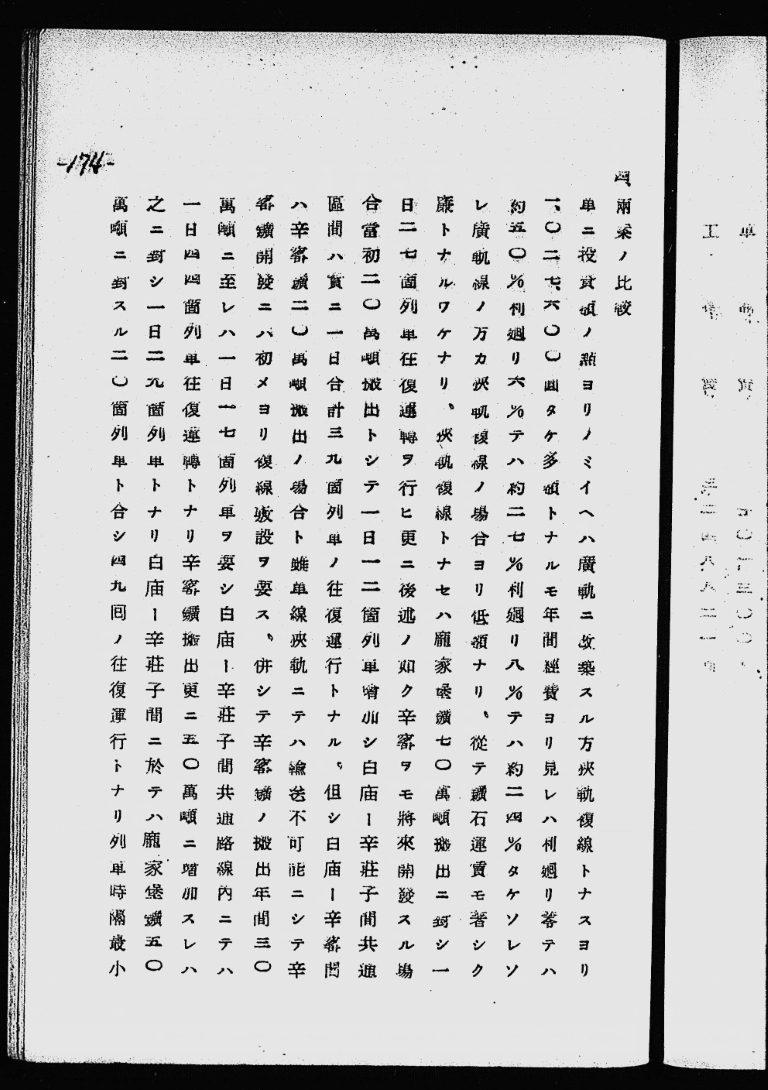 -174-
四、兩案ノ比較
單ニ投資額ノ點ヨリノミイヘハ廣軌ニ改築スル方狹軌複線トナスヨリ
一、〇二七、六〇〇圓タケ多額トナルモ年間經費ヨリ見レハ利廻リ零テハ
約五〇％利廻リ六％テハ約二七％利廻リ八％テハ約二四％タケソレソ
レ廣軌線ノ万カ狹軌複線ノ場合ヨリ低額ナリ、從テ鑛石運賃モ著シク
廉トナルワケナリ、狹軌複線トナセハ龐家堡鑛七〇萬噸搬出ニ對シ一
日二七箇列車往復運轉ヲ行ヒ更ニ後述ノ如ク辛窰ヲモ將來開發スル場
合當初二〇萬噸搬出トシテ一日一二箇列車增加シ白庙ー辛莊子間共通
區間ハ實ニ一日合計三九箇列車ノ往復運行トナル、但シ白庙ー辛窰間
ハ辛窰鑛二〇萬噸搬出ノ場合ト雖單線狹軌ニテハ輸送不可能ニシテ辛
窰鑛開發ニハ初メヨリ複線敷設ヲ要ス、併シテ辛窰鑛ノ搬出年間三〇
萬噸ニ至レハ一日一七箇列車ヲ要シ白庙ー辛莊子間共通路線內ニテハ
一日四四箇列車往復運轉トナリ辛窰鑛搬出更ニ五〇萬噸ニ增加スレハ
之ニ對シ一日二九箇列車トナリ白庙ー辛莊子間ニ於テハ龐家堡鑛五〇
萬噸ニ對スル二〇箇列車ト合シ四九回ノ往復運行トナリ列車時隔最小